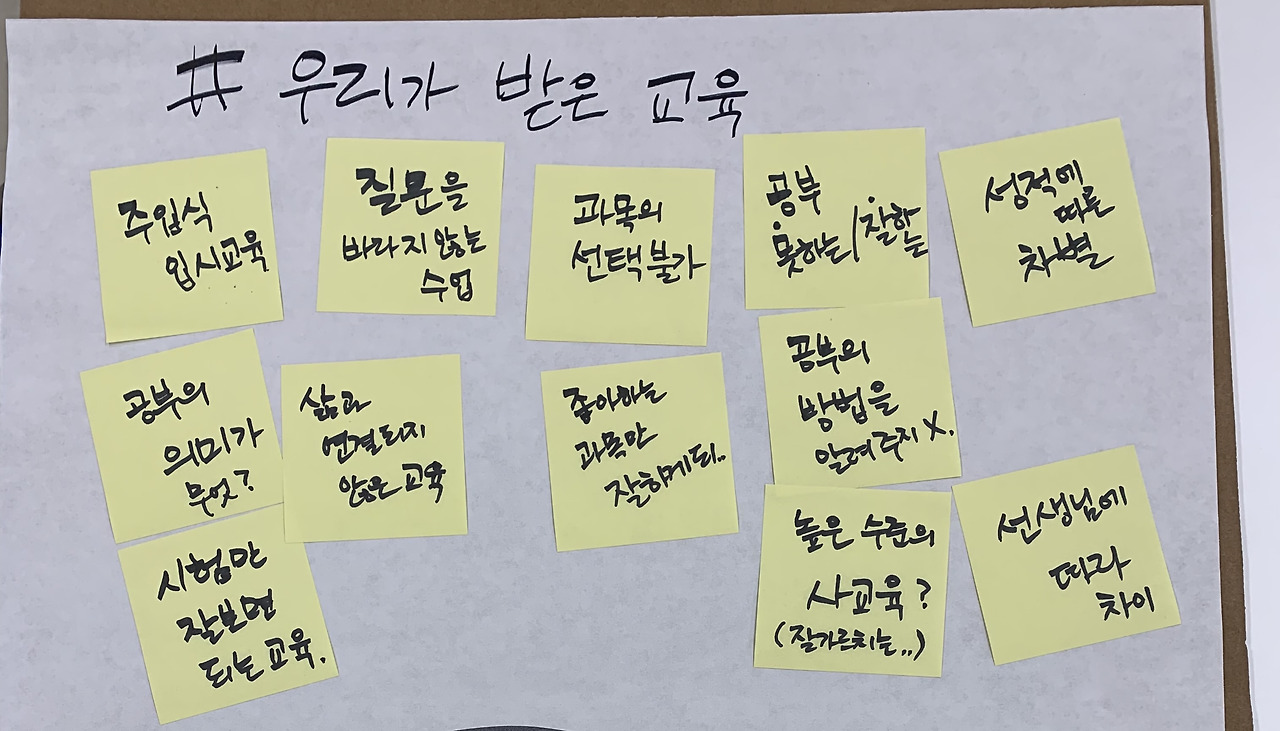 # 우리가 받은 교육
주입식
입시교육
질문을
바라지 않는
수업
과목의
선택 불가
공부
못하는/잘하는
성적에
따른
차별
공부의
의미가
무엇?
삶과
연결되지
않은 교육
좋아하는
과목만
잘하게 되..
공부의
방법을
알려주지 X.
시험만
잘보면
되는 교육.
높은 수준의
사교육?
(잘가르치는..)
선생님에
따라
차이